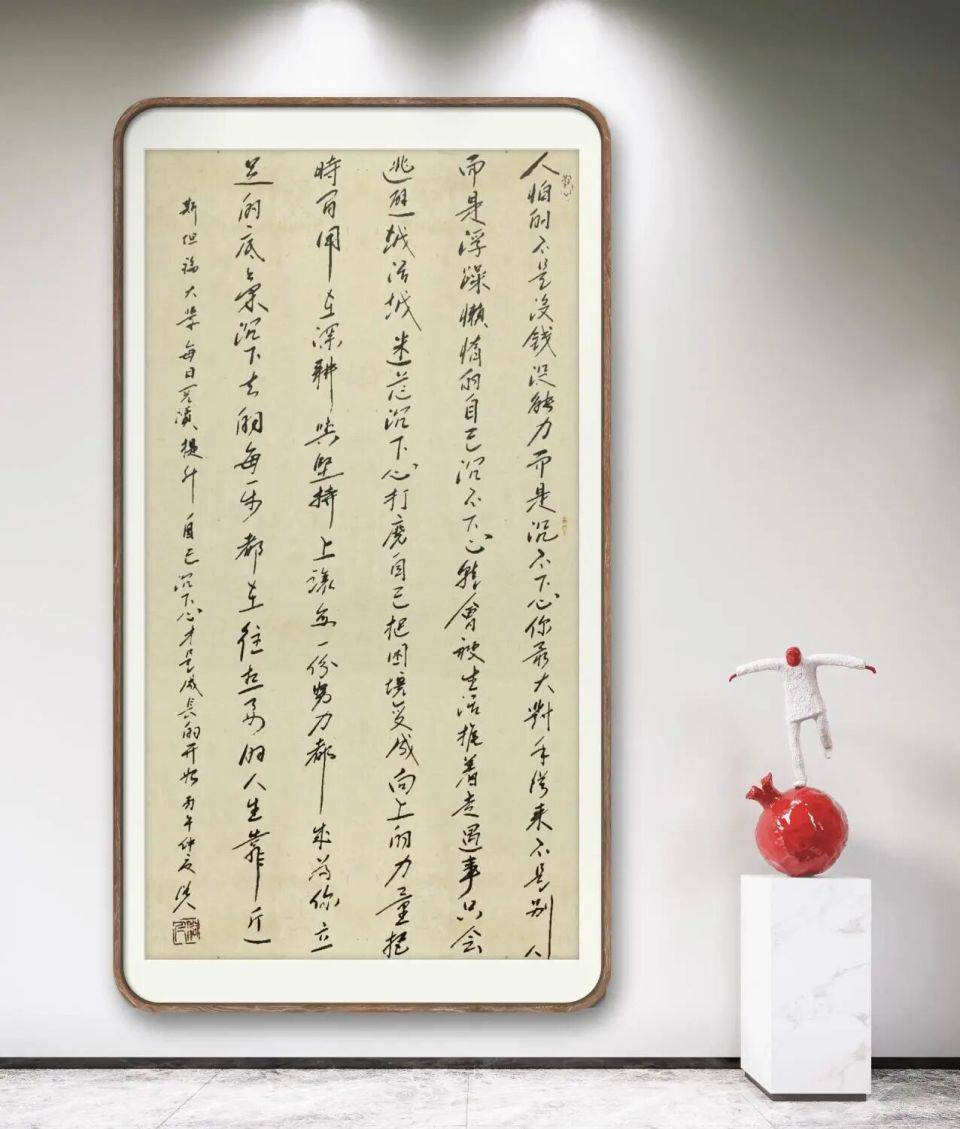 人怕的不是没錢没能力而是沉不下心你最大對手從来不是别人
而是浮躁懒惰的自己沉不下心就會被生活推着走遇事只会
逃避越活越迷茫沉下心打磨自己把困境变成向上的力量把
時间用在深耕與坚持上讓每一份努力都成为你立
足的底气沉下去的每一步都在往想要的人生靠近
斯坦福大学每日阅读提升自己沉下心才是成長的开始丙午仲夏